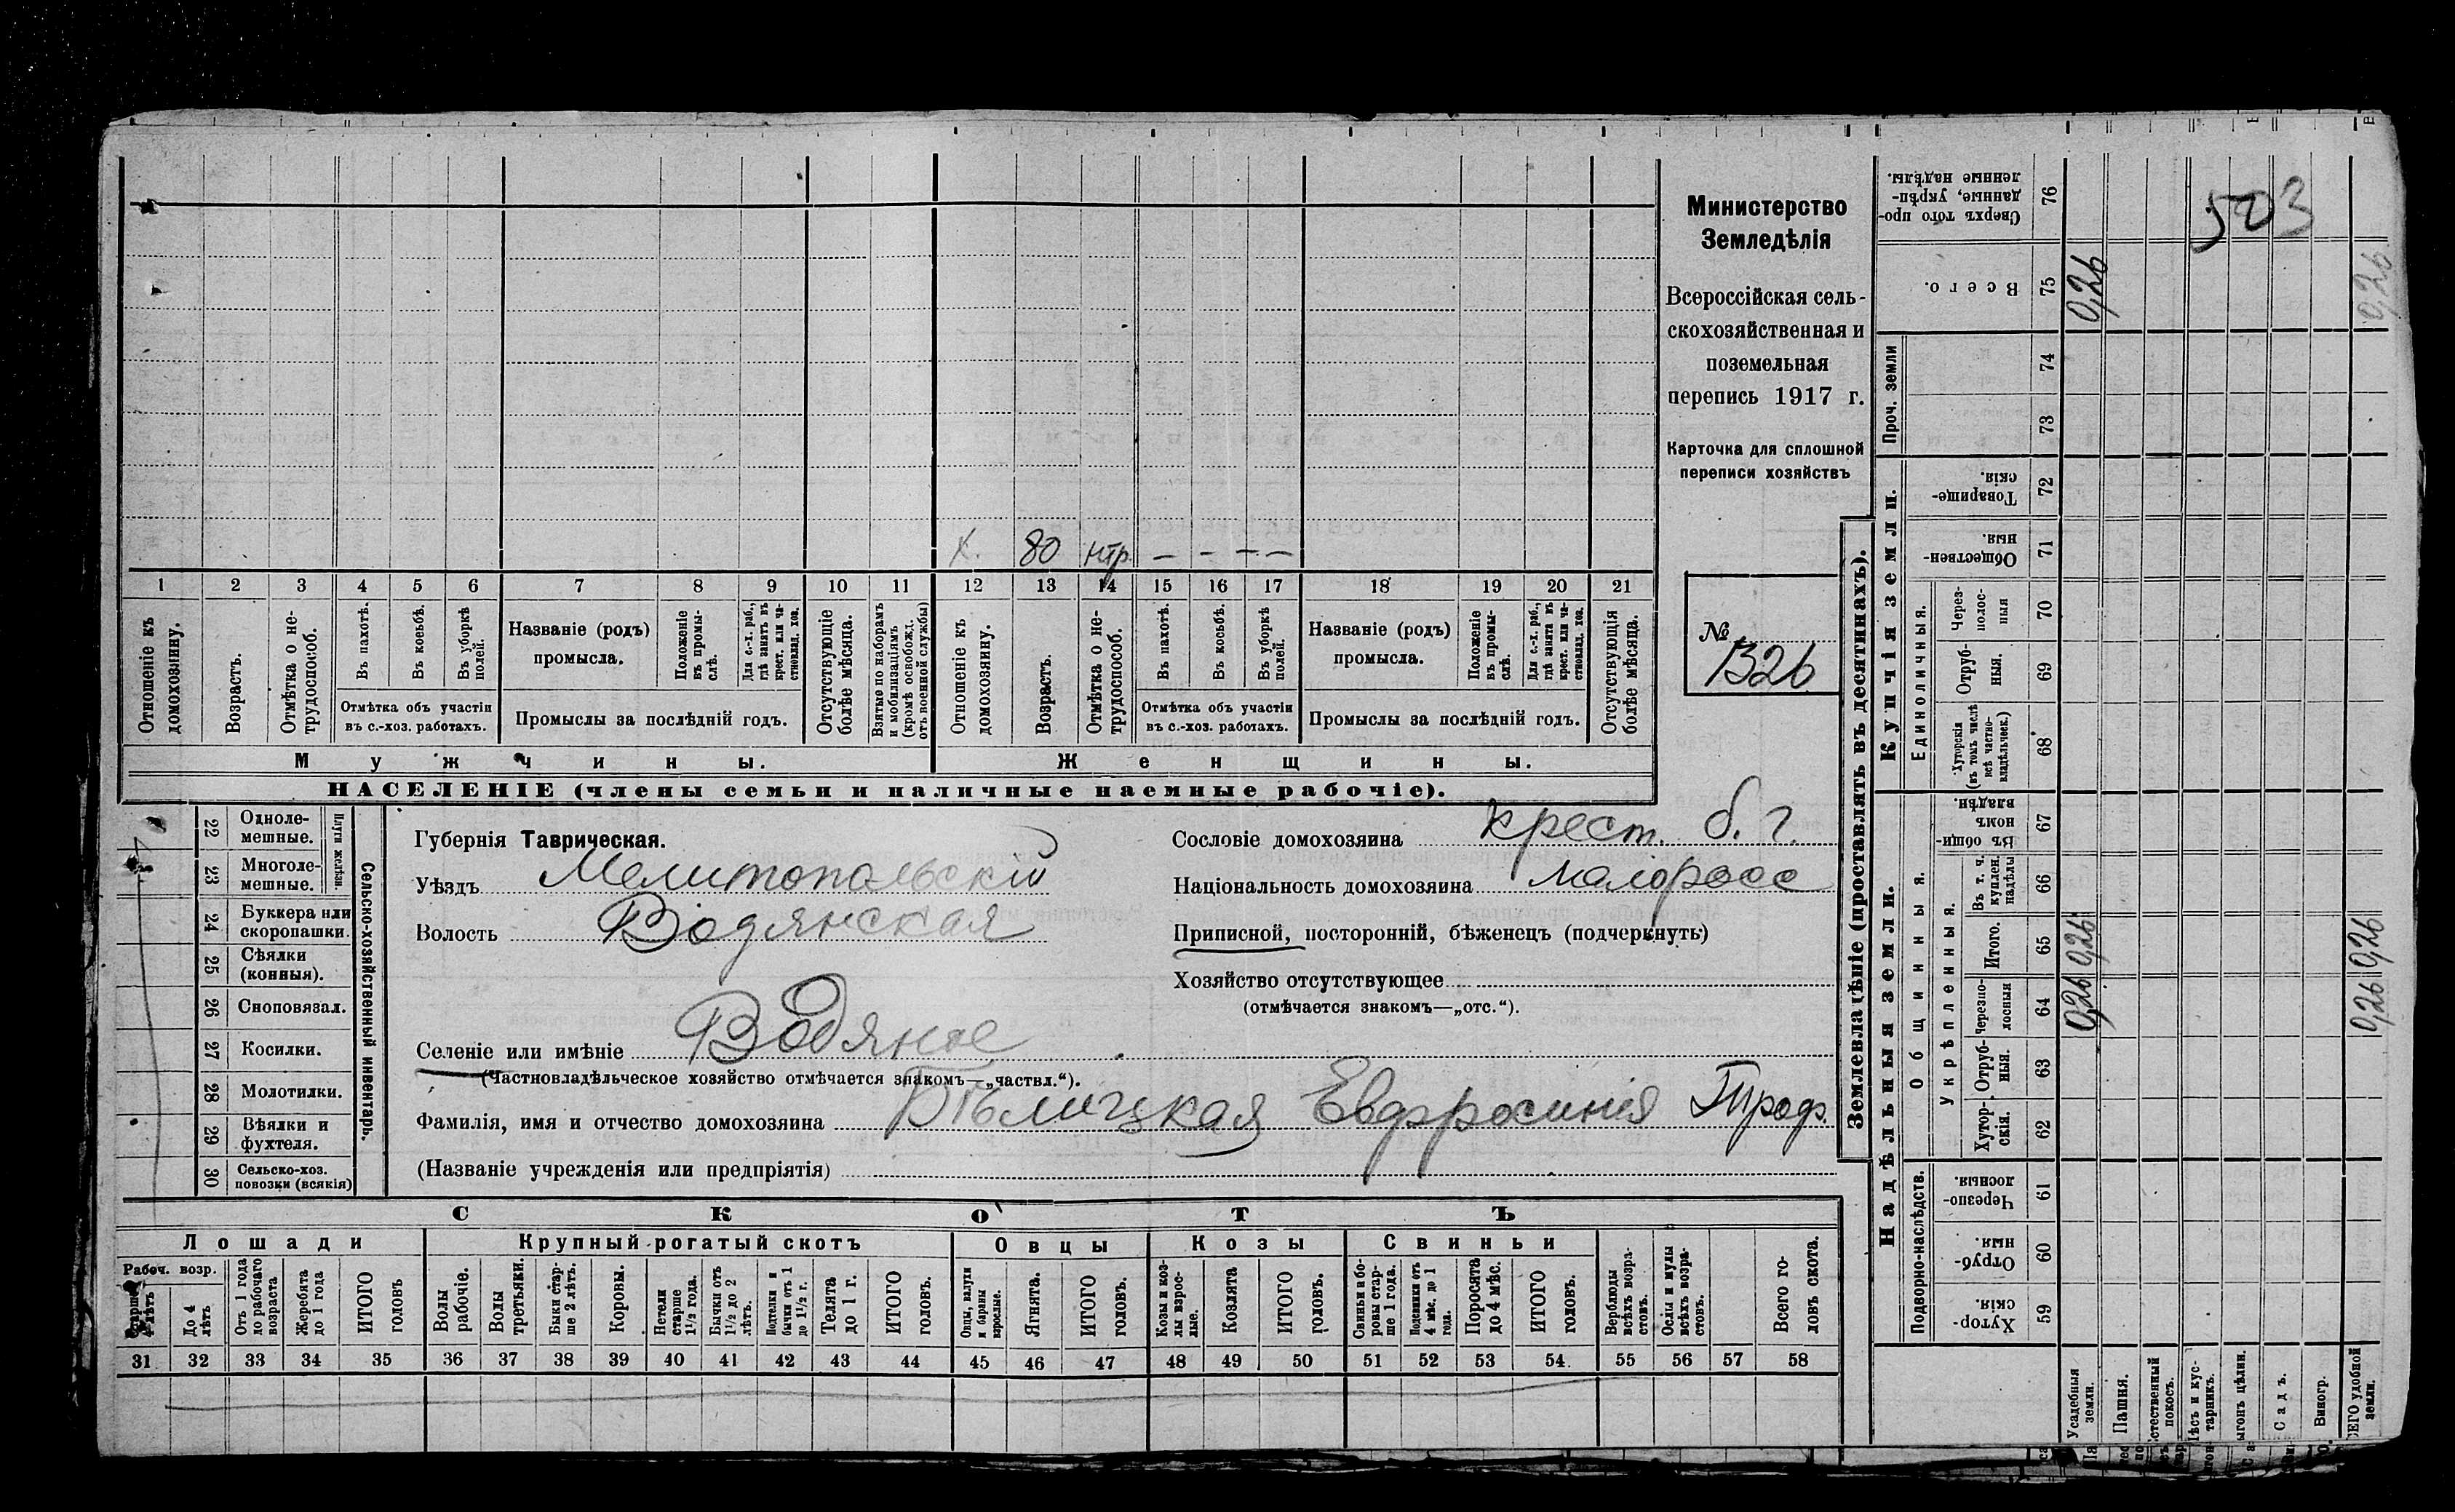 Министерство
Земледѣлія
Всероссійская сель-
скохозяйственная и
поземельная
перепись 1917 г.
Карточка для сплошной
переписи хозяйствъ
№
1326
503
х. 80 нтр. — — — —
1 2 3 4 5 6 7 8 9 10 11 12 13 14 15 16 17 18 19 20 21
Отношеніе къ домохозяину.
Возрастъ.
Отмѣтка о не-трудоспособ.
Въ пахотѣ.
Въ косьбѣ.
Въ уборкѣ полей.
Отмѣтка объ участіи
въ с.-хоз. работахъ.
Названіе (родъ)
промысла.
Положеніе въ промы-слѣ.
Для с.-х. раб., гдѣ занятъ въ крест. или ча-стновлад. хоз.
Промыслы за послѣдній годъ.
Отсутствующіе болѣе мѣсяца.
Взятые по наборамъ и мобилизаціямъ (кромѣ освобожд. отъ военной службы)
Отношеніе къ домохозяину.
Возрастъ.
Отмѣтка о не-трудоспособ.
Въ пахотѣ.
Въ косьбѣ.
Въ уборкѣ полей.
Отмѣтка объ участіи
въ с.-хоз. работахъ.
Названіе (родъ)
промысла.
Положеніе въ промы-слѣ.
Для с.-х. раб., гдѣ занята въ крест. или ча-стновлад. хоз.
Промыслы за послѣдній годъ.
Отсутствующія болѣе мѣсяца.
Мужчины.
Женщины.
НАСЕЛЕНІЕ (члены семьи и наличные наемные рабочіе).
22 Одноле-мешные.
23 Многоле-мешные.
Плуги желѣзн.
24 Буккера или скоропашки.
25 Сѣялки (конныя).
26 Сноповязал.
27 Косилки.
28 Молотилки.
29 Вѣялки и фухтеля.
30 Сельско-хоз. повозки (всякія)
Сельско-хозяйственный инвентарь.
Губернія Таврическая.
Уѣздъ Мелитопольскій
Волость Водянская
Селеніе или имѣніе Водяное
(Частновладѣльческое хозяйство отмѣчается знакомъ—„частвл.“).
Фамилія, имя и отчество домохозяина Бѣлицкая Евфросинія Троф.
(Названіе учрежденія или предпріятія)
Сословіе домохозяина крест. б. г.
Національность домохозяина малоросс
Приписной, посторонній, бѣженецъ (подчеркнуть)
Хозяйство отсутствующее
(отмѣчается знакомъ—„отс.“).
СКОТЪ
Лошади
Крупный рогатый скотъ
Овцы
Козы
Свиньи
Рабоч. возр.
До 4 лѣтъ
Отъ 1 года до рабочаго возраста
Жеребята до 1 года
ИТОГО головъ
Волы рабочіе.
Волы третьяки.
Быки стар-ше 2 лѣтъ.
Коровы.
Нетели старше 1½ года.
Бычки отъ 1½ до 2 лѣтъ.
Подтелки и бычки отъ 1 до 1½ г.
Телята до 1 г.
ИТОГО головъ.
Овцы, валухи и бараны взрослые.
Ягнята.
ИТОГО головъ.
Козы и коз-лы взрос-лые.
Козлята
ИТОГО головъ.
Свиньи и бо-ровы стар-ше 1 года.
Подсвинки отъ 4 мѣс. до 1 года.
Поросята до 4 мѣс.
ИТОГО головъ.
Верблюды всѣхъ возра-стовъ.
Ослы и мулы всѣхъ возра-стовъ.
Всего го-ловъ скота.
31 32 33 34 35 36 37 38 39 40 41 42 43 44 45 46 47 48 49 50 51 52 53 54. 55 56 57 58
Землевладѣніе (проставлять въ десятинахъ).
Надѣльныя земли.
Купчія земли.
Проч. земли
Подворно-наслѣдств.
Общинныя.
Укрѣпленныя.
Единоличныя.
Сверхъ того про-данные, укрѣп-ленные надѣлы. 76
Всего. 75 0,26 0,26
74
73
Товарище-скія. 72
Обществен-ныя. 71
Через-полос-ныя 70
Отруб-ныя. 69
Хуторскія (въ томъ числѣ всѣ частно-владѣльческ.) 68
Въ общи-номъ владѣн. 67
Въ т. ч. куплен. надѣлы 66
Итого. 65 0,26 0,26
Черезпо-лосныя 64 0,26 0,26
Отруб-ныя. 63
Хутор-скія. 62
Черезпо-лосныя. 61
Отруб-ныя. 60
Хутор-скія. 59
Усадебныя земли.
Пашня.
стественный покосъ.
Лѣсъ и кус-тарникъ.
ыгонъ цѣлин.
Садъ.
Виногр.
ЕГО удобной земли.